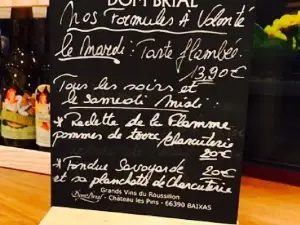 DOM BRIAL
Nos Formules A Volonté
le Mardi : Tarte flambée
13,90€
Tous les soirs et
le Samedi midi :
* Raclette de la Flamme
pommes de terre, charcuterie
20€
* Fondue Savoyarde 20€
et sa planchette de Charcuterie
Grands Vins du Roussillon
Dom Brial - Château les Pins - 66390 BAIXAS